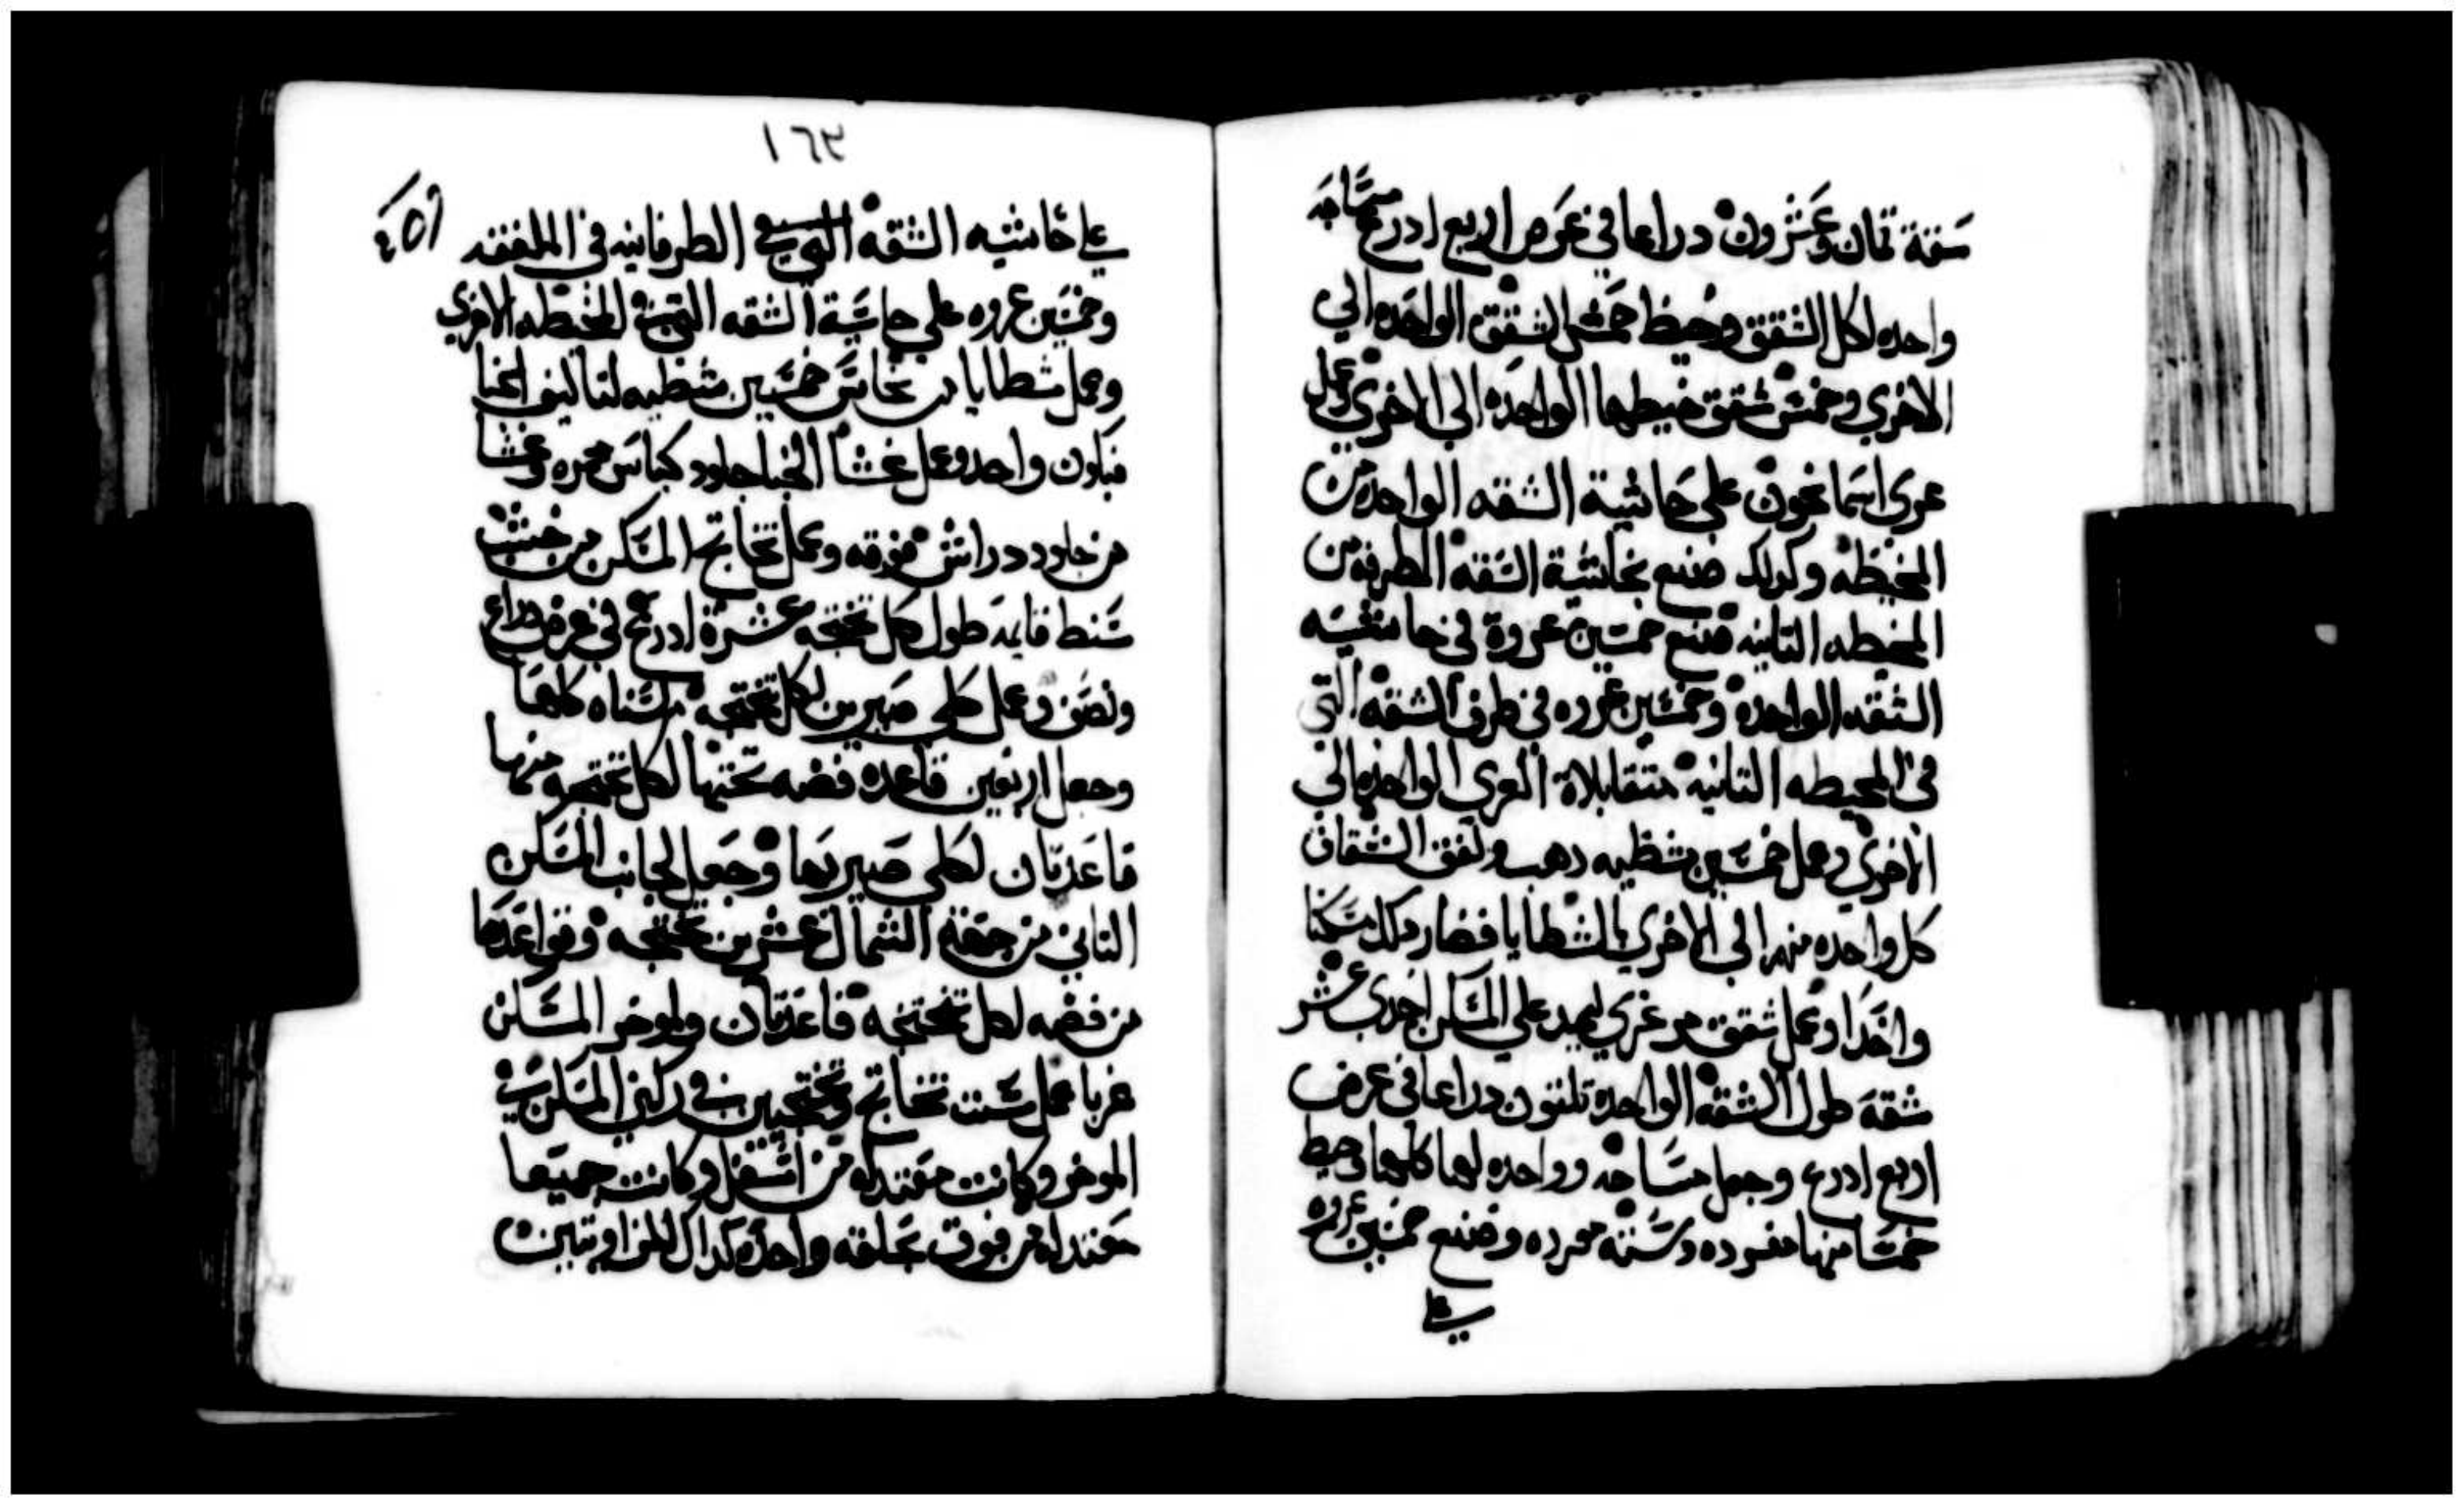 شقة تمان وعشرون دراعا في عرض اربع ادرع مساحه
واحده لكل الشقق وخيط خمش الشقق الواحده الي
الاخري وخمش شقق خيطها الواحده الي الاخري وعمل
عري اسمانحون علي حاشية الشقه الواحده من
المخيطه وكدلك صنع بحاشية الشقه الطرفه من
المخيطه التانيه صنع خمسين عروة في حاشيه
الشقه الواحده وخمسين عروه في طرف الشقه التي
في المخيطه التانيه متقابلات العري الواحده الي
الاخري وعمل خمسين شظيه دهب ولفق الشقاق
كل واحده منهم الي الاخري بالشظايا فصار مسكنا
واحدا وعمل شقق مرعزي ليمد علي المسكن احدي عشر
شقة طول الشقه الواحده تلتون دراعا في عرض
اربع ادرع وجعل مساحه وواحده لها كلها وخيط
خمسا منها مفرده وسته مفرده وصنع خمسين عروه
علي
١٦٣
علي حاشيه الشقه التي في الطرفانيه في الملفقه
وخمسين عروه علي حاشية الشقه التي في المخيطه الاخري
وعمل شظايا من نحاس خمسين شظيه لتاليف الخبا
فيكون واحد وعمل غشا الخبا جلود كباش محمره وغشا
من جلود دراش مورقه وعمل تخاتج المسكن من خشب
شنط قايمه طول كل تختجه عشرة ادرع في عرض دراع
ونصف وعمل كلي صبرين لكل تختجه مسناه كلها
وجعل اربعين قاعده فضه تحتها لكل تختجه منها
قاعدتان لكلي صبريها وجعل لجانب المسكن
التاني من جهة الشمال عشرين تختجه وقواعدها
من فضه لكل تختجه قاعدتان ولموخر المسكن
غربا عمل ست تخاتج وتختجين في ركني المسكن في
الموخر وكانت معتدله من اسفل وكانت جميعا
معتدله من فوق بحلقه واحده كدا للزاويتين